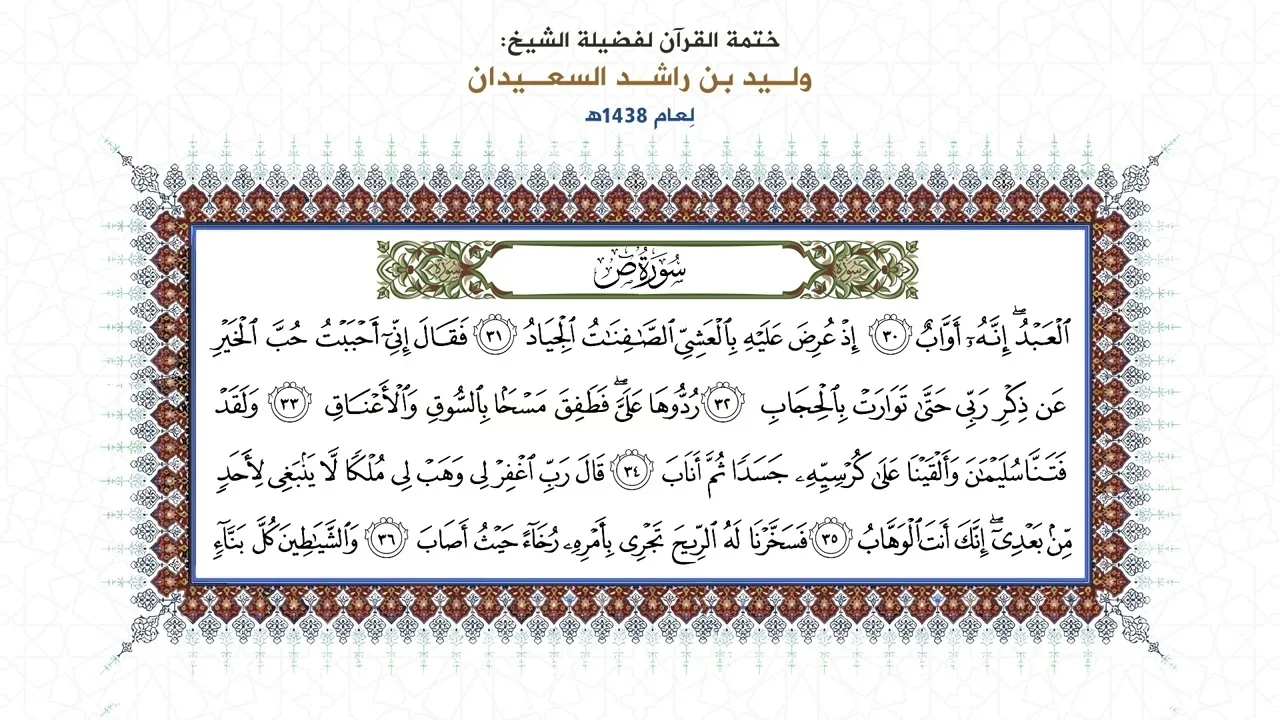 ختمة القرآن لفضيلة الشيخ:
وليد بن راشد السعيدان
لِعام 1438هـ
سورة سُورَةُ صٓ سورة
ٱلْعَبْدُ ۖ إِنَّهُۥٓ أَوَّابٌ ٣٠ إِذْ عُرِضَ عَلَيْهِ بِٱلْعَشِىِّ ٱلصَّٰفِنَٰتُ ٱلْجِيَادُ ٣١ فَقَالَ إِنِّىٓ أَحْبَبْتُ حُبَّ ٱلْخَيْرِ
عَن ذِكْرِ رَبِّى حَتَّىٰ تَوَارَتْ بِٱلْحِجَابِ ٣٢ رُدُّوهَا عَلَىَّ ۖ فَطَفِقَ مَسْحًۢا بِٱلسُّوقِ وَٱلْأَعْنَاقِ ٣٣ وَلَقَدْ
فَتَنَّا سُلَيْمَٰنَ وَأَلْقَيْنَا عَلَىٰ كُرْسِيِّهِۦ جَسَدًا ثُمَّ أَنَابَ ٣٤ قَالَ رَبِّ ٱغْفِرْ لِى وَهَبْ لِى مُلْكًا لَّا يَنۢبَغِى لِأَحَدٍ
مِّنۢ بَعْدِىٓ ۖ إِنَّكَ أَنتَ ٱلْوَهَّابُ ٣٥ فَسَخَّرْنَا لَهُ ٱلرِّيحَ تَجْرِى بِأَمْرِهِۦ رُخَآءً حَيْثُ أَصَابَ ٣٦ وَٱلشَّيَٰطِينَ كُلَّ بَنَّآءٍ